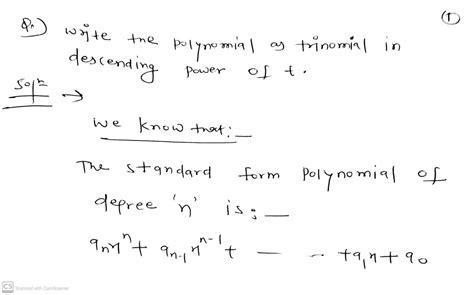 ①
Qn) write the polynomial as trinomial in
descending power of t.
Solⁿ →
we know that:—
The standard form polynomial of
degree 'n' is:—
aₙxⁿ + aₙ₋₁xⁿ⁻¹ + — - - + a₁x + a₀
CS Scanned with CamScanner